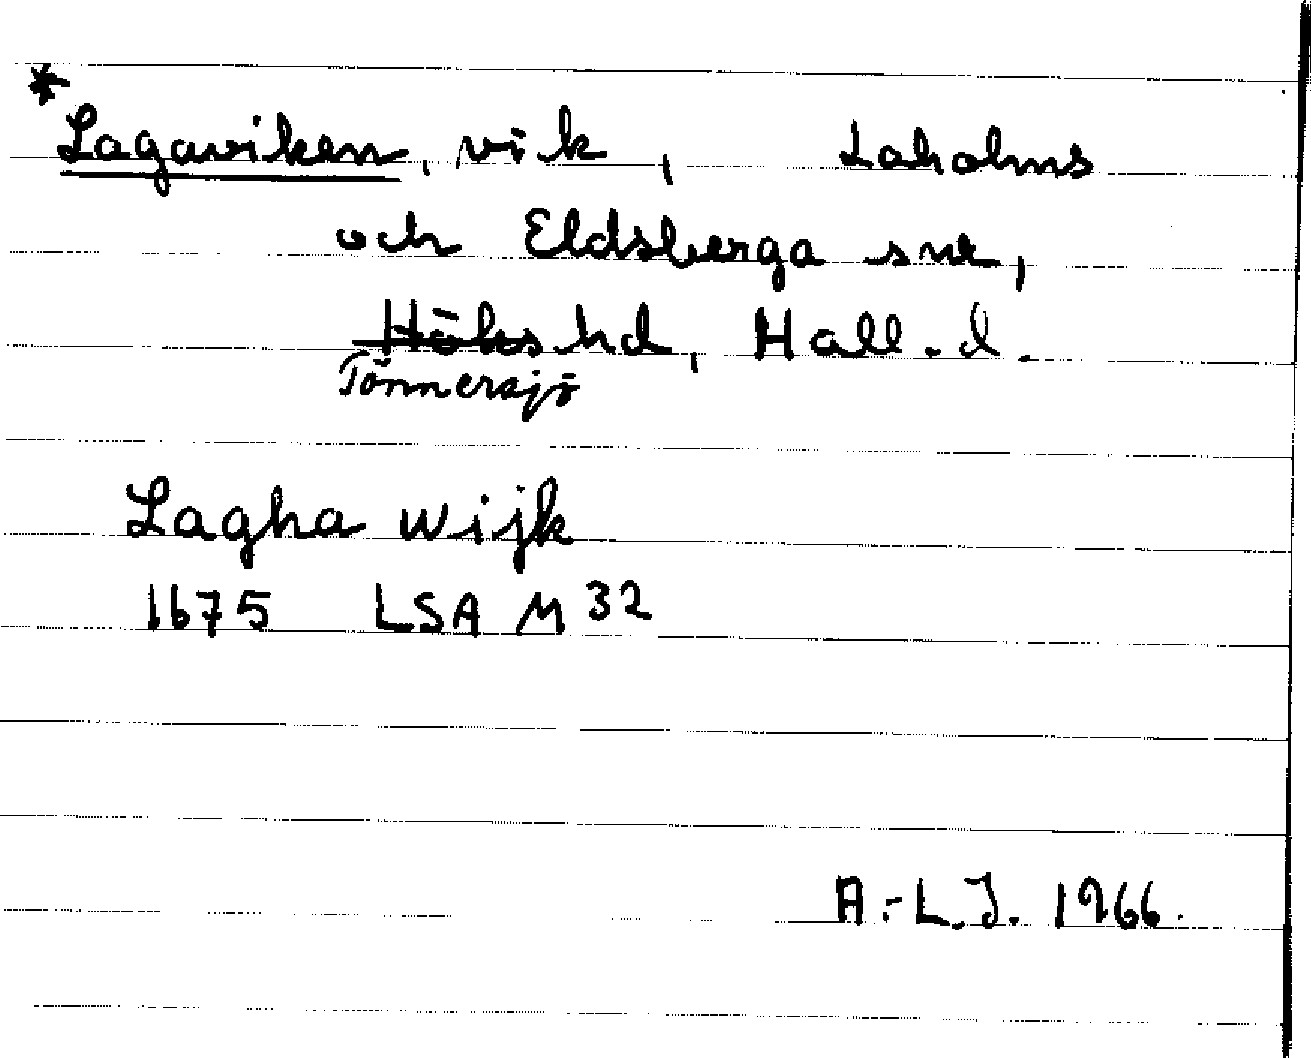 * Lagaviken, vik, Laholms
och Eldsberga snr,
Höks hd, Hall. l.
Tönnersjö
Lagha wijk
1675 LSA M 32
A.-L.J. 1966.